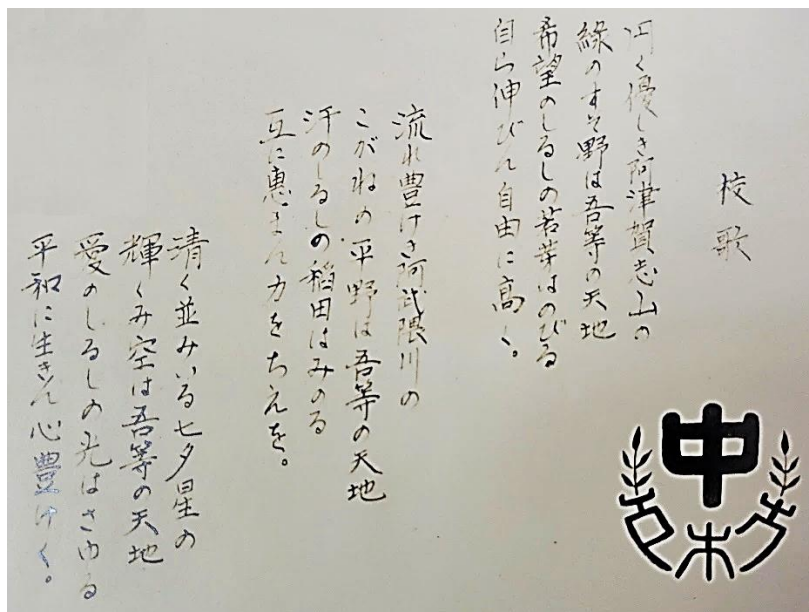 校歌
円く優しき阿津賀志山の
緑のすそ野は吾等の天地
希望のしるしの若芽はのびる
自ら伸びん自由に高く。
流れ豊けき阿武隈川の
こがねの平野は吾等の天地
汗のしるしの稲田はみのる
互に恵まん力をちえを。
清く並みいる七夕星の
輝くみ空は吾等の天地
愛のしるしの光はさゆる
平和に生きん心豊けく。
中